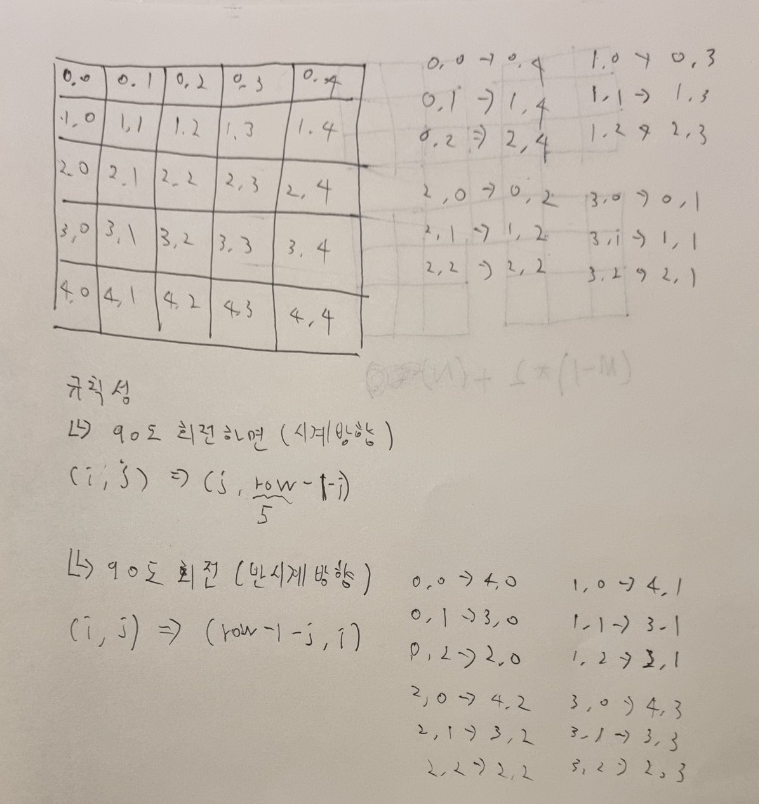 0.0 0.1 0,2 0.3 0.4
1,0 1,1 1.2 1,3 1.4
2.0 2.1 2.2 2,3 2,4
3,0 3,1 3,2 3.3 3.4
4.0 4,1 4.2 4.3 4,4
0,0 → 0,4
0,1 → 1,4
0,2 → 2,4
1,0 → 0,3
1,1 → 1,3
1,2 → 2,3
2,0 → 0,2
2,1 → 1,2
2,2 → 2,2
3,0 → 0,1
3,1 → 1,1
3,2 → 2,1
규칙성
↳ 90도 회전하면 (시계방향)
(i, j) ⇒ (j, row-1-i)
5
↳ 90도 회전 (반시계방향)
(i, j) ⇒ (row-1-j, i)
0,0 → 4,0
0,1 → 3,0
0,2 → 2,0
1,0 → 4,1
1,1 → 3,1
1,2 → 2,1
2,0 → 4,2
2,1 → 3,2
2,2 → 2,2
3,0 → 4,3
3,1 → 3,3
3,2 → 2,3